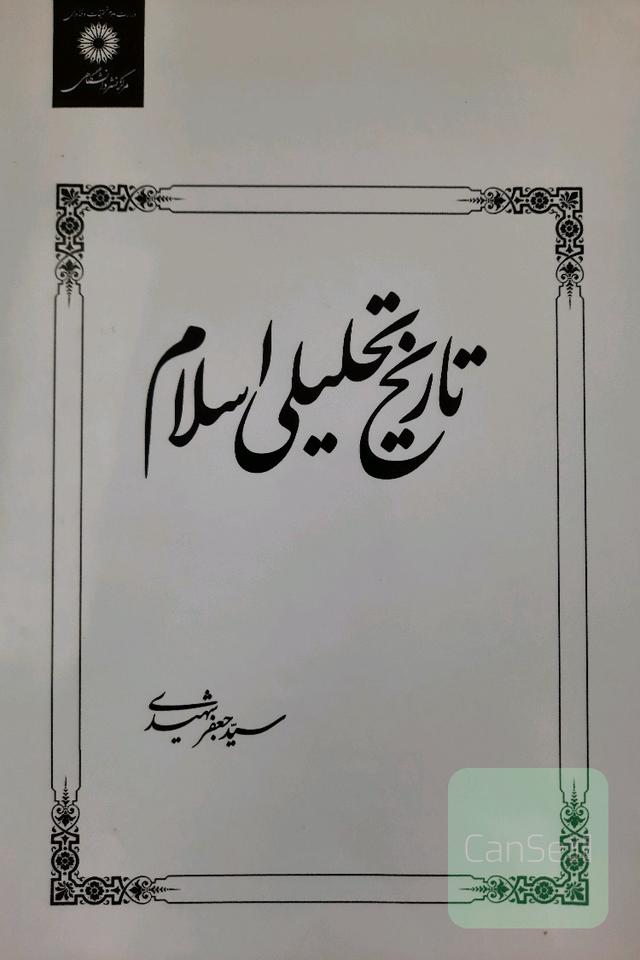 وزارت علوم، تحقیقات و فناوری
مرکز نشر دانشگاهی
تاریخ تحلیلی اسلام
سیّد جعفر شهیدی